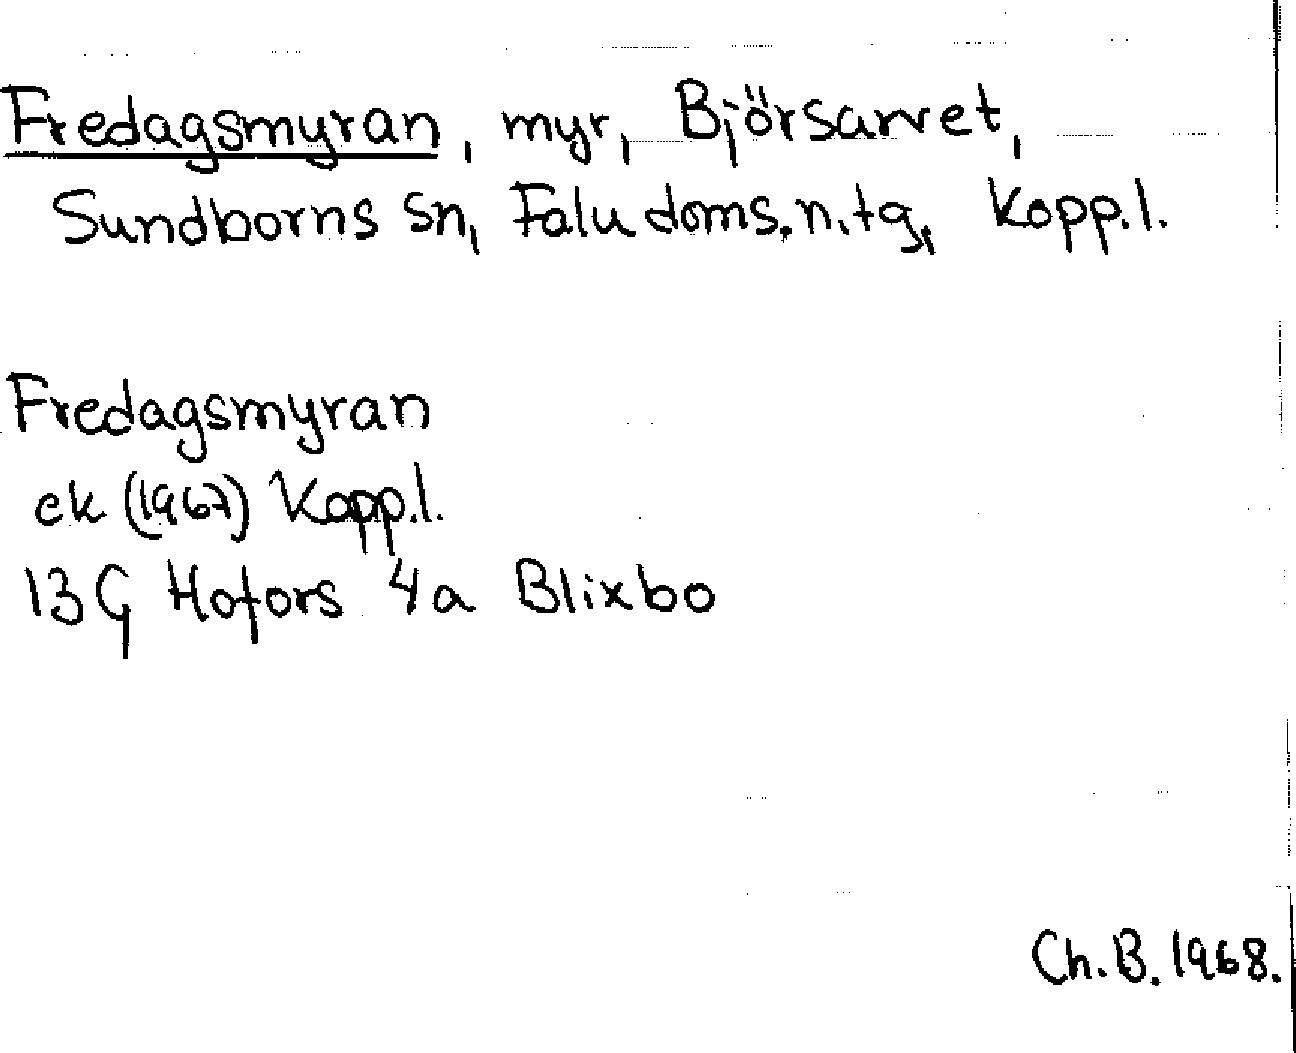 Fredagsmyran, myr, Björsarvet,
Sundborns sn, Falu doms.n.tg, Kopp.l.
Fredagsmyran
ek (1967) Kopp.l.
13G Hofors 4a Blixbo
Ch.B. 1968.